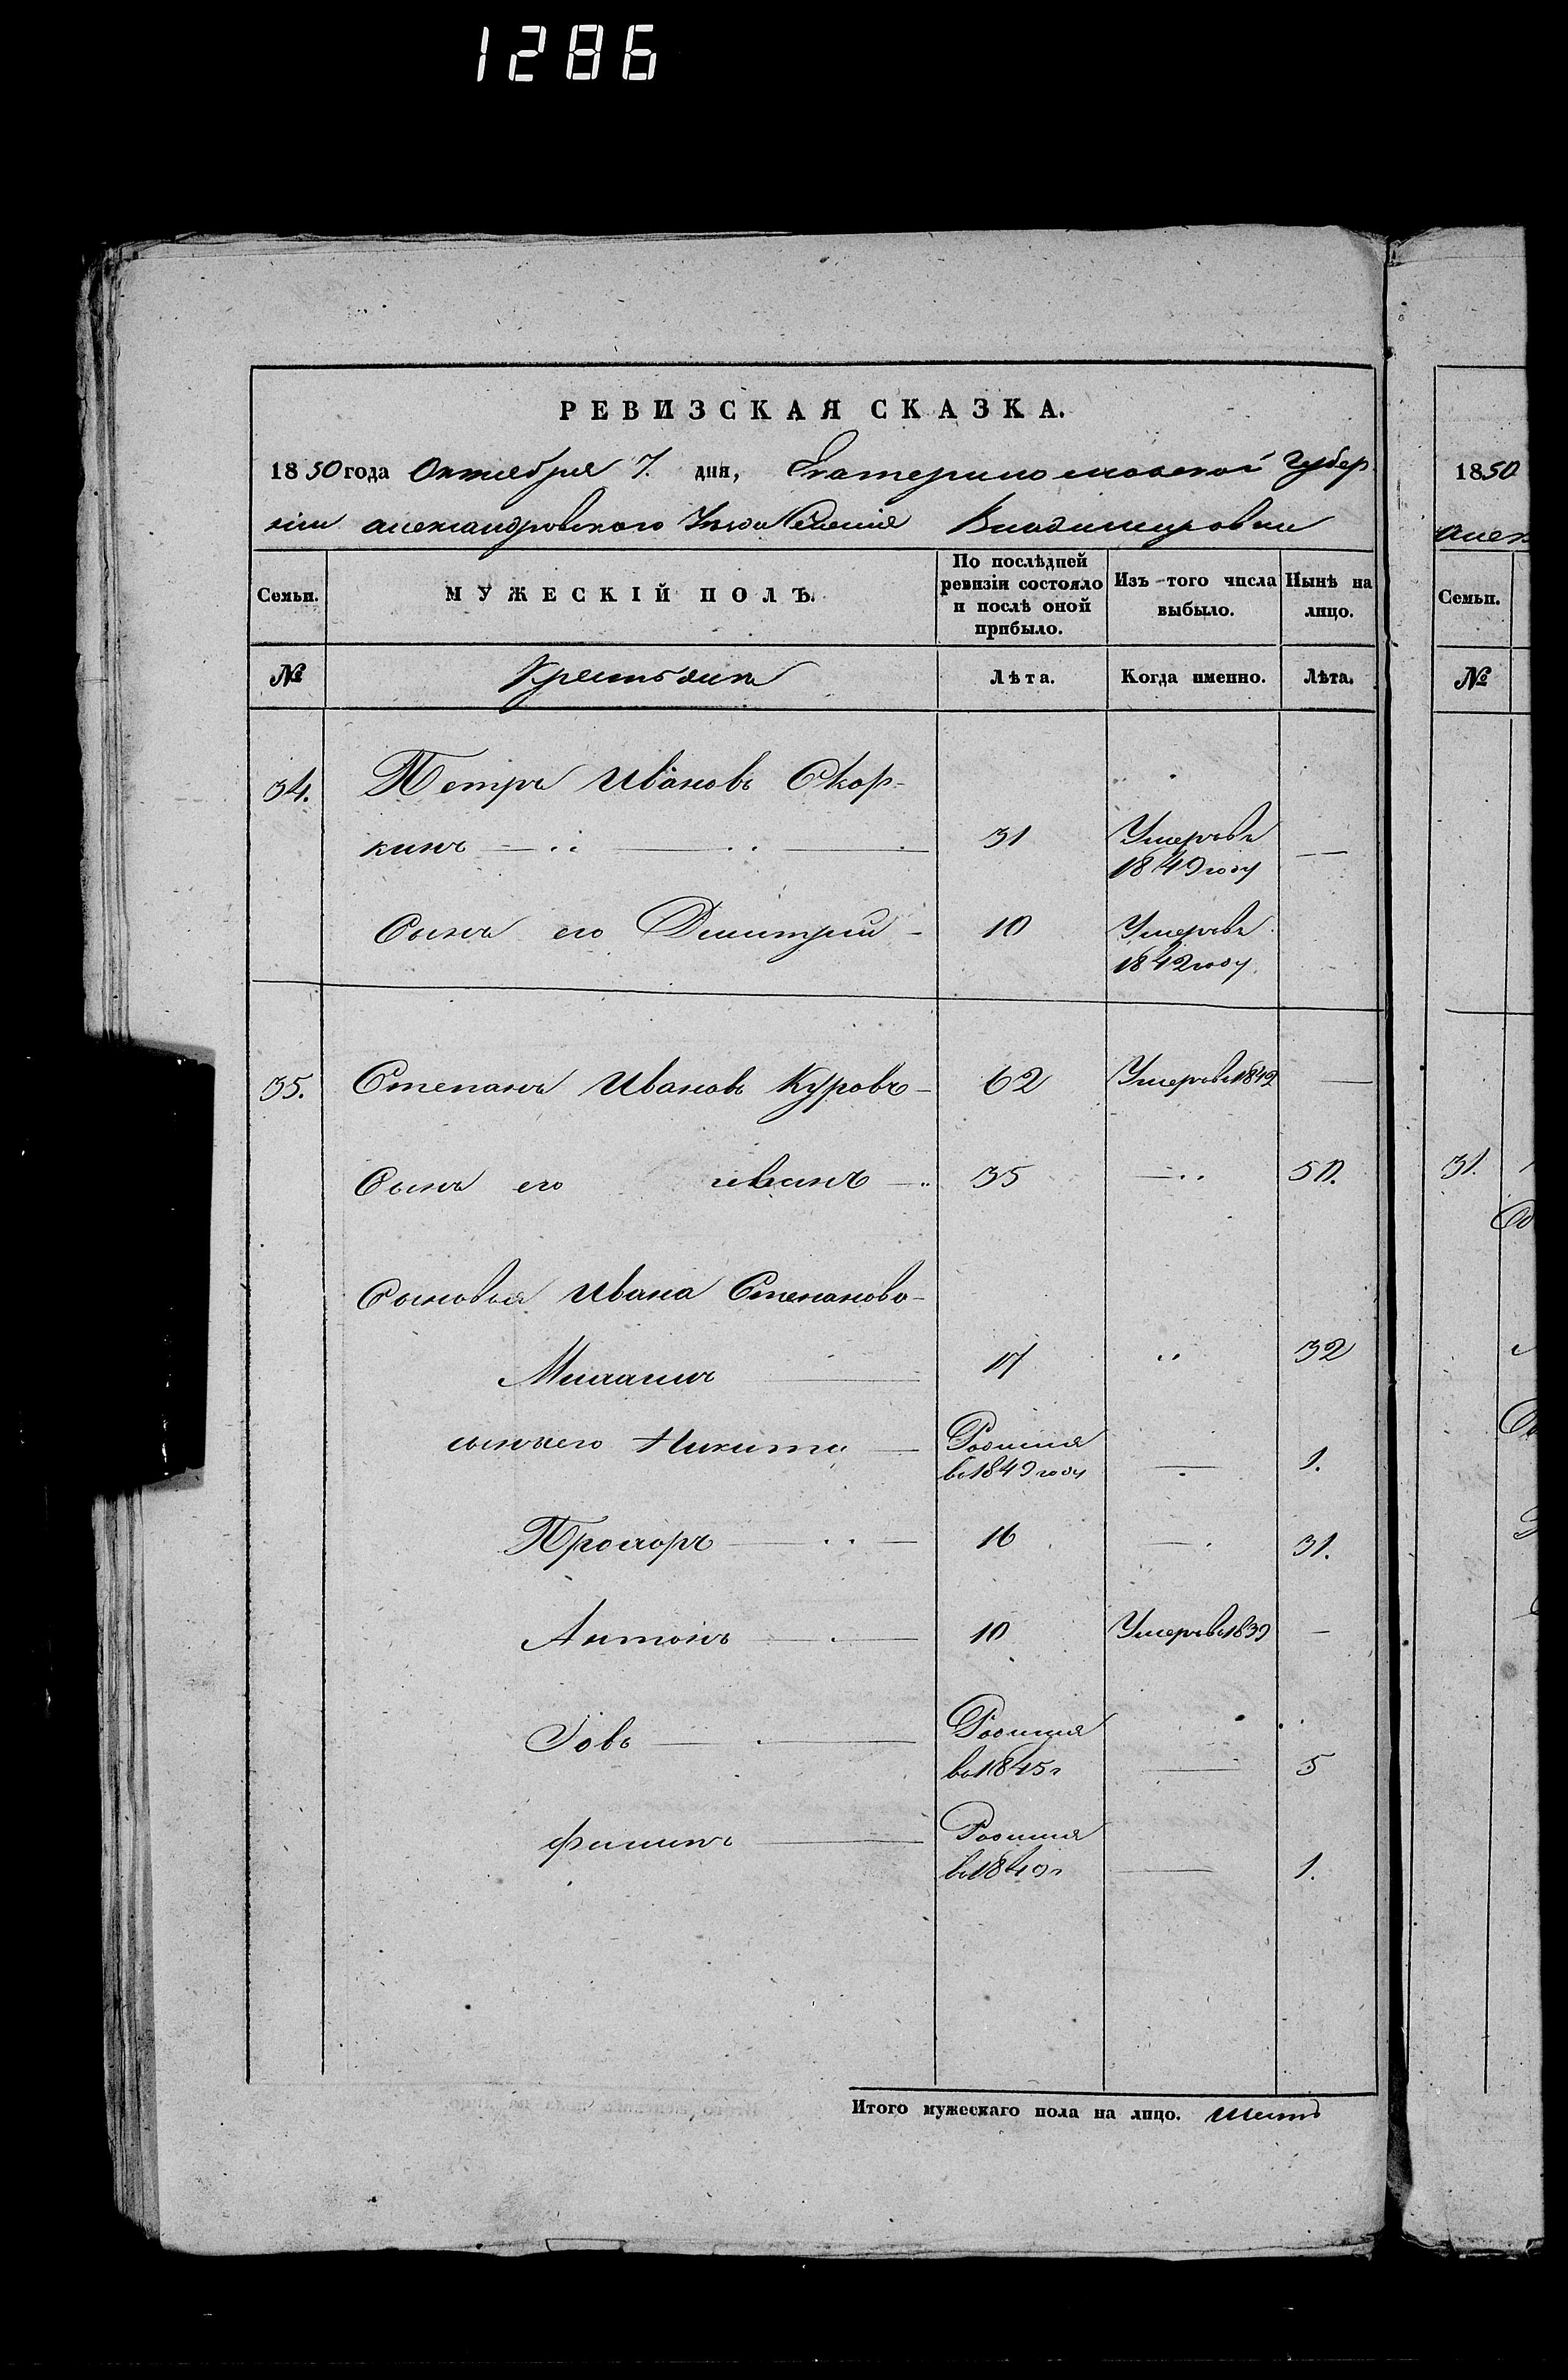 1286
РЕВИЗСКАЯ СКАЗКА.
1850 года Октября 7. дня, Екатеринославской Губер
ніи Александровского Уезда Селенія Владимировки
Семьи. МУЖЕСКІЙ ПОЛЪ. По послѣдней ревизіи состояло и послѣ оной прибыло. Изъ того числа выбыло. Нынѣ на лицо.
№ Крестьяне Лѣта. Когда именно. Лѣта.
34. Петръ Ивановъ Скор-
кинъ — 31 Умеръ въ —
1849 году
Сынъ его Дмитрий - 10 Умеръ въ
1842 году
35. Степанъ Ивановъ Куровъ - 62 Умеръ въ 1842 —
Сынъ его иванъ — 35 — 50.
Сыновья Ивана Степанова -
17 32
сынъ его Никита — Родился
в 1849 году — 1.
Прохоръ — 16 — 31.
Антонъ — 10 Умеръ в 1839 —
Іовъ — Родился
в 1845 г — 5
филипъ — Родился
в 1849 г — 1.
Итого мужескаго пола на лицо. шесть
1850
Алек
Семьи.
№
31.